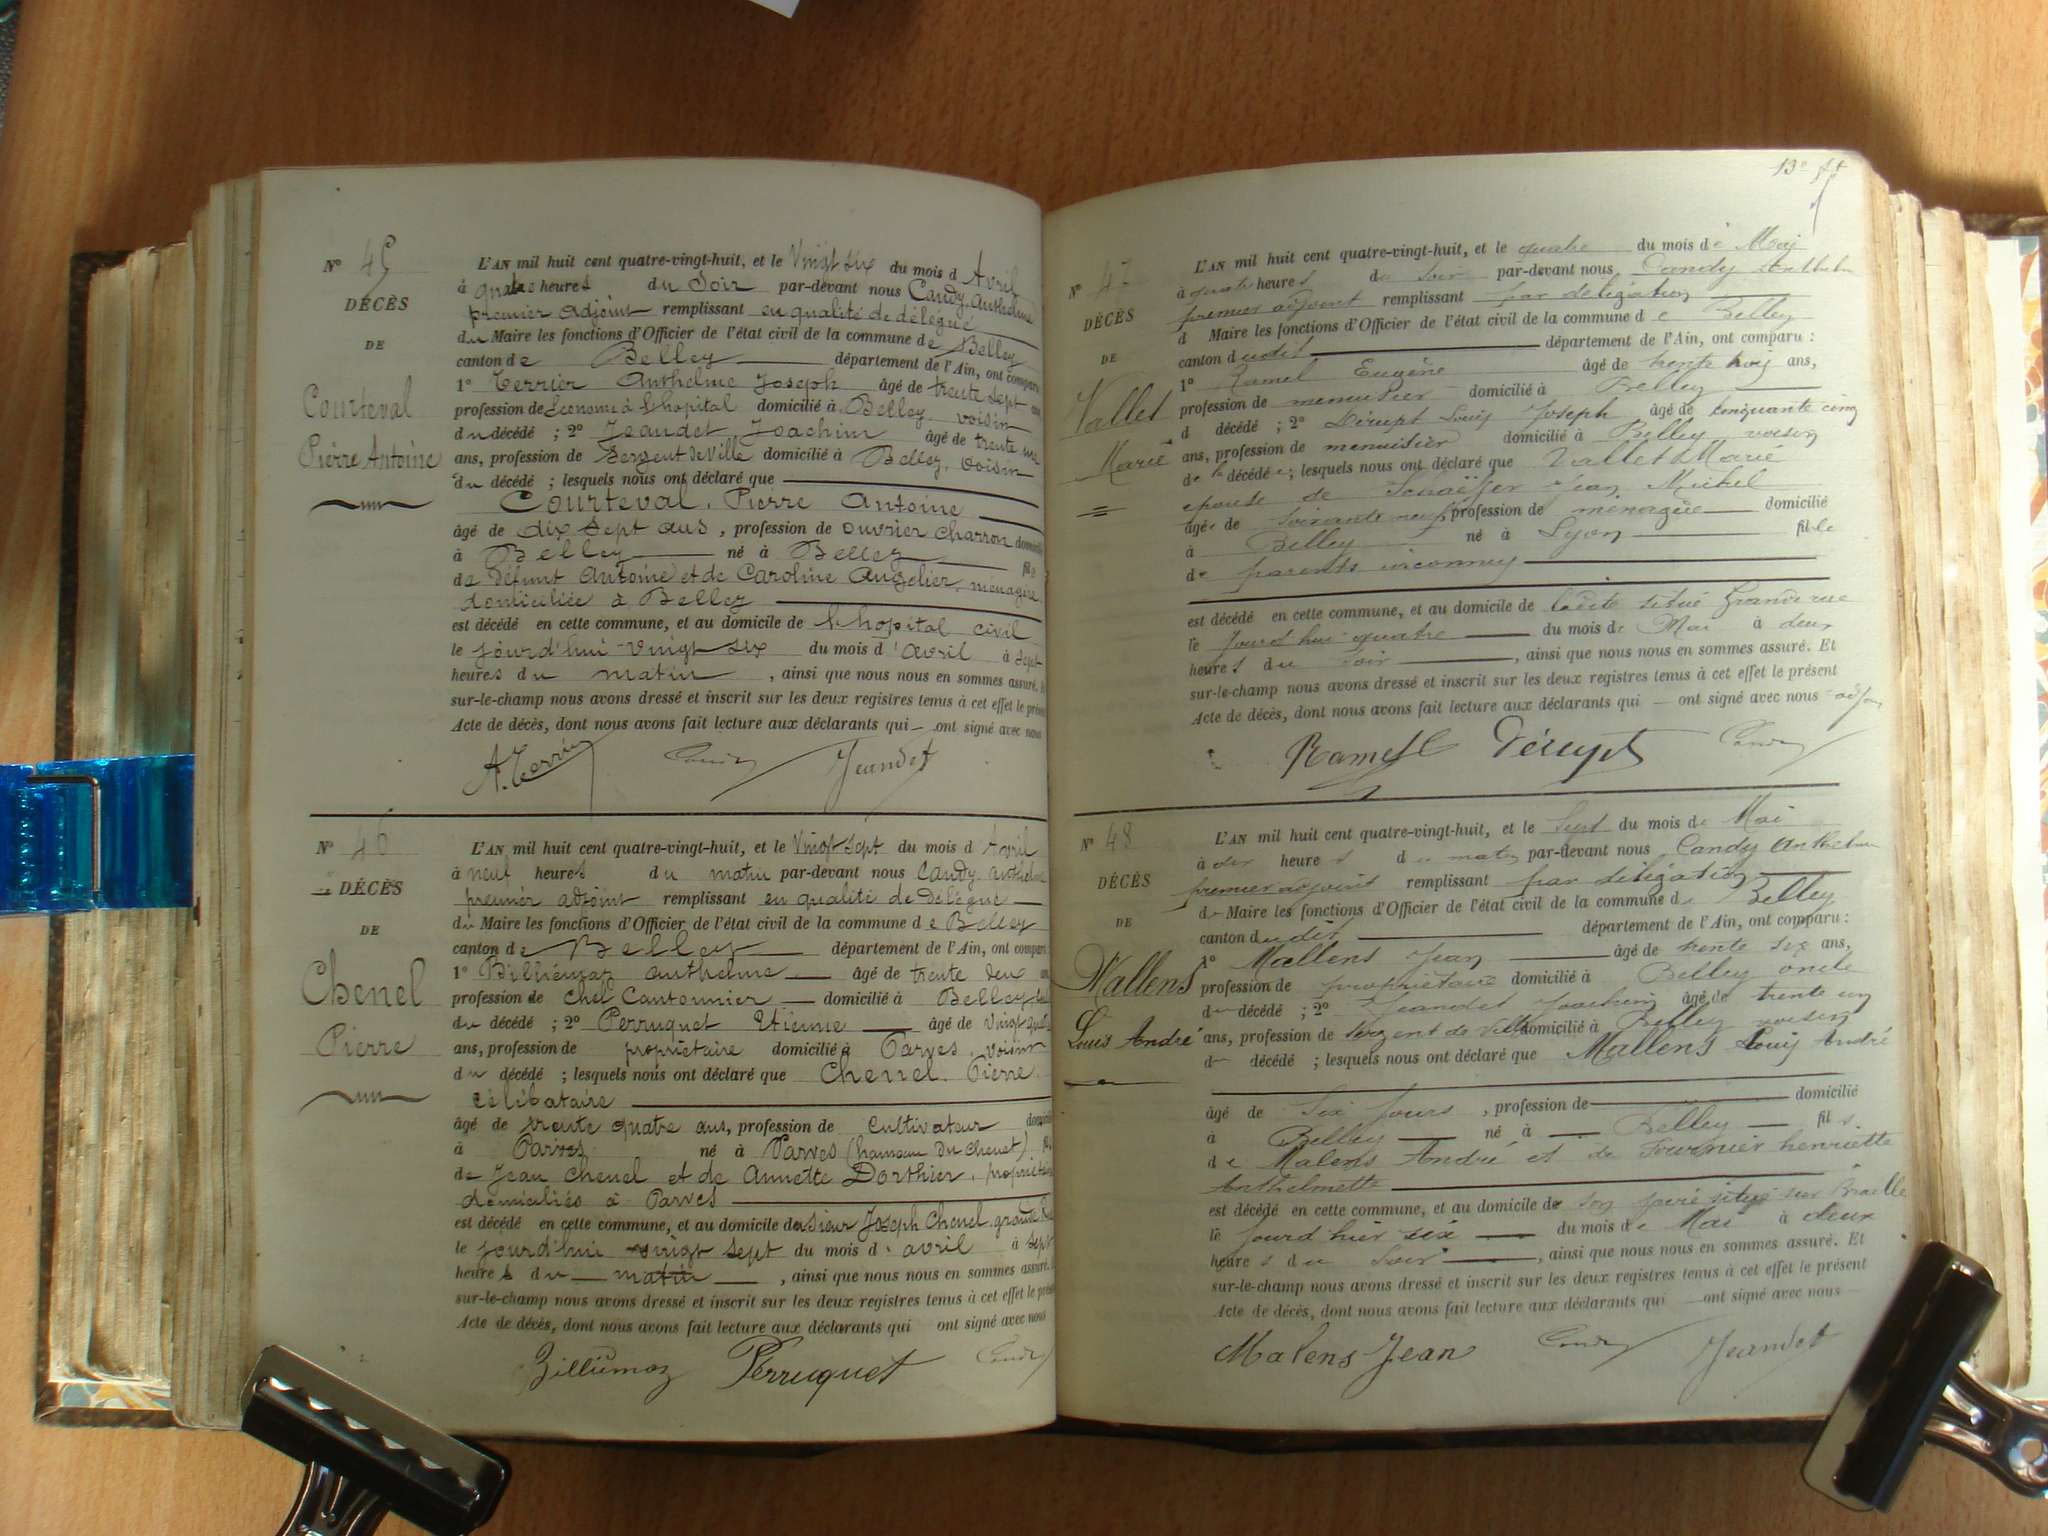 Nº 45
DÉCÈS
DE
Courteval
Pierre Antoine
L'AN mil huit cent quatre-vingt-huit, et le Vingt six du mois d Avril
à quatre heures du Soir par-devant nous Candy Anthelme
premier adjoint remplissant en qualité de délégué
du Maire les fonctions d'Officier de l'état civil de la commune de Belley
canton de Belley département de l'Ain, ont comparu
1º Terrier Anthelme Joseph âgé de trente sept ans
profession de Econome à l'hopital domicilié à Belley voisin
du décédé ; 2º Jeandet Joachim âgé de trente un
ans, profession de Sergent de Ville domicilié à Belley, voisin
du décédé ; lesquels nous ont déclaré que
Courteval, Pierre Antoine
âgé de dix sept ans, profession de ouvrier charron domicilié
à Belley né à Belley fils
de défunt Antoine et de Caroline Angelier, ménagère
domiciliée à Belley
est décédé en cette commune, et au domicile de l'hopital civil
le jourd'hui vingt six du mois d'avril à sept
heures du matin, ainsi que nous nous en sommes assuré. Et
sur-le-champ nous avons dressé et inscrit sur les deux registres tenus à cet effet le présent
Acte de décès, dont nous avons fait lecture aux déclarants qui — ont signé avec nous
A. Terrier Candy Jeandet
Nº 46
DÉCÈS
DE
Chenel
Pierre
L'AN mil huit cent quatre-vingt-huit, et le Vingt sept du mois d Avril
à neuf heures du matin par-devant nous Candy anthelme
premier adjoint remplissant en qualité de délégué
du Maire les fonctions d'Officier de l'état civil de la commune de Belley
canton de Belley département de l'Ain, ont comparu
1º Billiémaz anthelme âgé de trente deux ans
profession de chef Cantonnier domicilié à Belley
du décédé ; 2º Perruquet Etienne âgé de vingt quatre
ans, profession de propriétaire domicilié à Parves, voisin
du décédé ; lesquels nous ont déclaré que Chenel Pierre
célibataire
âgé de trente quatre ans, profession de cultivateur domicilié
à Parves né à Parves (hameau du Chenet) fils
de Jean Chenel et de Annette Dorthier, propriétaires
domiciliés à Parves
est décédé en cette commune, et au domicile du sieur Joseph Chenel, grande Rue
le jourd'hui vingt sept du mois d'avril à sept
heures du matin, ainsi que nous nous en sommes assuré. Et
sur-le-champ nous avons dressé et inscrit sur les deux registres tenus à cet effet le présent
Acte de décès, dont nous avons fait lecture aux déclarants qui ont signé avec nous
Billiémaz Perruquet Candy
13e
Nº 47
DÉCÈS
DE
Vallet
Marie
L'AN mil huit cent quatre-vingt-huit, et le quatre du mois de Mai
à quatre heures du soir par-devant nous Candy Anthelme
premier adjoint remplissant par délégation
d Maire les fonctions d'Officier de l'état civil de la commune de Belley
canton dudit département de l'Ain, ont comparu :
1º Ramel Eugène âgé de trente huit ans,
profession de menuisier domicilié à Belley
d décédé ; 2º Dérupt Louis Joseph âgé de cinquante cinq
ans, profession de menuisier domicilié à Belley voisin
de la décédée ; lesquels nous ont déclaré que Vallet Marie
epouse de Schaëffer Jean Michel
âgée de soixante neuf profession de ménagère domicilié
à Belley né à Lyon fille
de parents inconnus
est décédé en cette commune, et au domicile de ladite situé Grande rue
le jourd'hui quatre du mois de Mai à deux
heures du soir, ainsi que nous nous en sommes assuré. Et
sur-le-champ nous avons dressé et inscrit sur les deux registres tenus à cet effet le présent
Acte de décès, dont nous avons fait lecture aux déclarants qui — ont signé avec nous
Ramel Dérupt Candy
Nº 48
DÉCÈS
DE
Mallens
Louis André
L'AN mil huit cent quatre-vingt-huit, et le Sept du mois de Mai
à dix heures du matin par-devant nous Candy Anthelme
premier adjoint remplissant par délégation
du Maire les fonctions d'Officier de l'état civil de la commune de Belley
canton dudit département de l'Ain, ont comparu :
1º Mallens Jean âgé de trente six ans,
profession de propriétaire domicilié à Belley oncle
du décédé ; 2º Jeandet Joachim âgé de trente un
ans, profession de sergent de ville domicilié à Belley voisin
du décédé ; lesquels nous ont déclaré que Mallens Louis André
âgé de Six jours, profession de domicilié
à Belley né à Belley fils
de Malens André et de Fournier henriette
Anthelmette
est décédé en cette commune, et au domicile de son père situé sur
le jourd'hier six du mois de Mai à deux
heures du soir, ainsi que nous nous en sommes assuré. Et
sur-le-champ nous avons dressé et inscrit sur les deux registres tenus à cet effet le présent
Acte de décès, dont nous avons fait lecture aux déclarants qui — ont signé avec nous —
Malens Jean Candy Jeandet